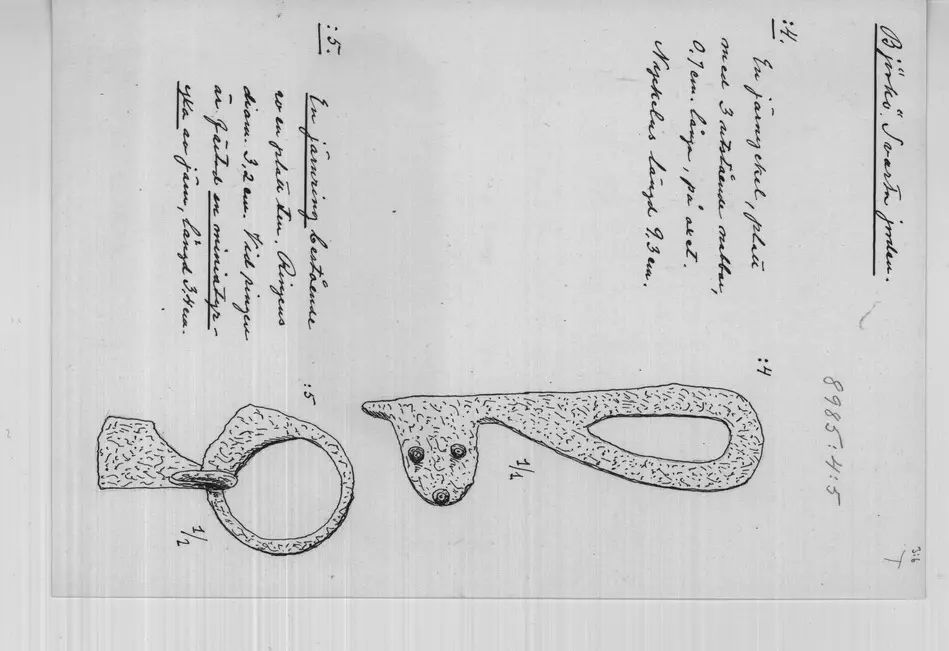 Björkö. Svarta jorden.
8985:4:5
316
T
:4.
En järnyckel, platt
med 3 utstående nabbar,
0.7 cm. långa, på axet.
Nyckelns längd 9,3 cm.
:4
1/1
:5.
En järnring bestående
av en platt ten. Ringens
diam. 3,2 cm. Vid ringen
är fästad en miniatyr-
yxa av järn, längd 3,4 cm.
:5
1/1